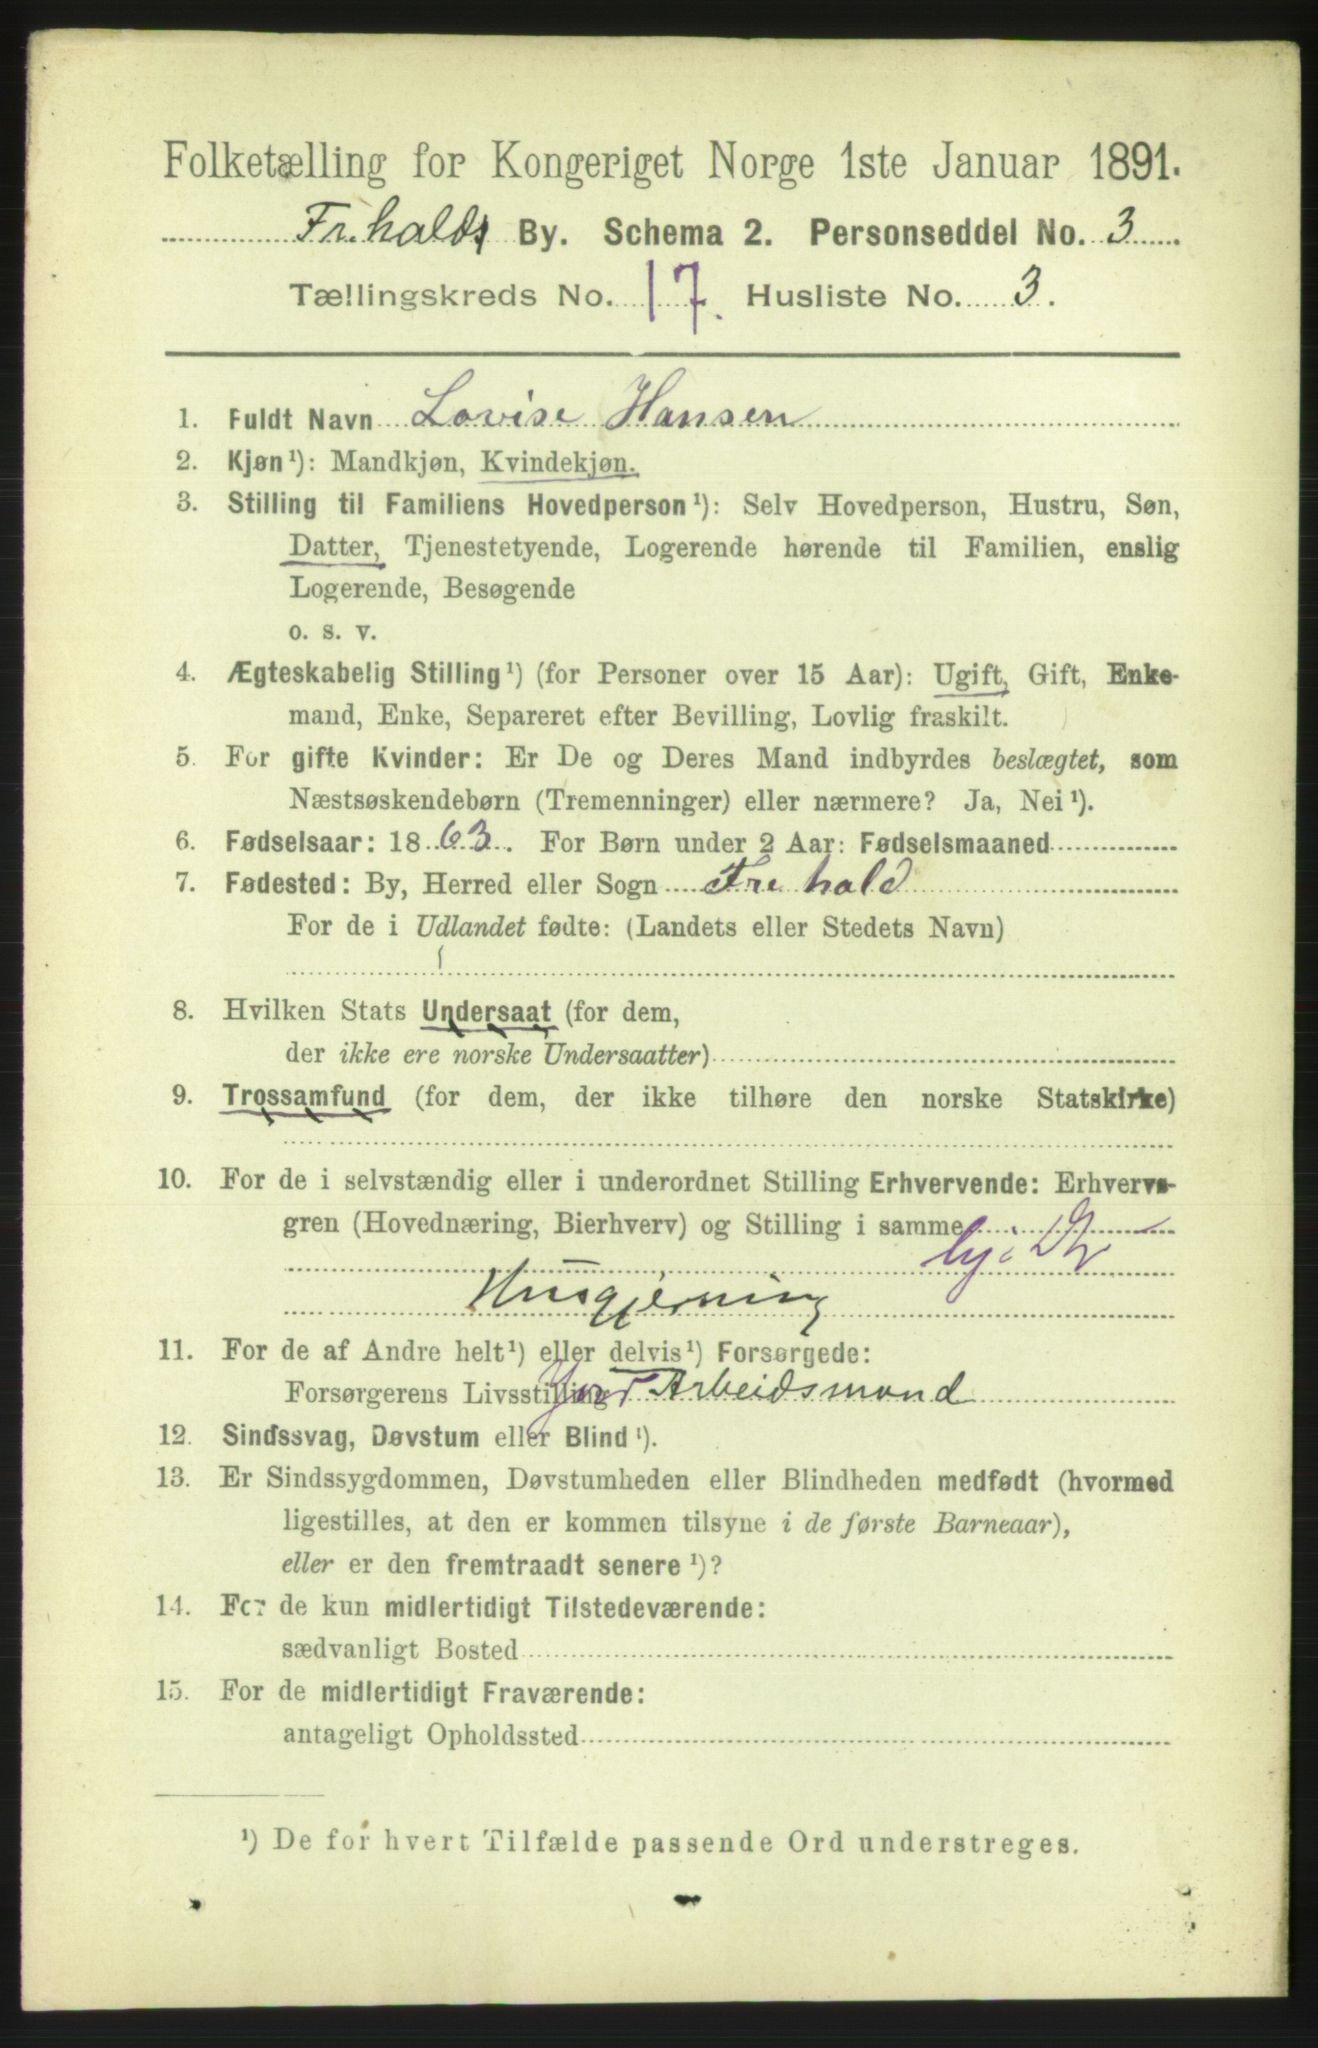 Folketælling for Kongeriget Norge 1ste Januar 1891.
Fr.halds By. Schema 2. Personseddel No. 3
Tællingskreds No. 17. Husliste No. 3.
1. Fuldt Navn Lovise Hansen
2. Kjøn¹): Mandkjøn, Kvindekjøn.
3. Stilling til Familiens Hovedperson¹): Selv Hovedperson, Hustru, Søn,
Datter, Tjenestetyende, Logerende hørende til Familien, enslig
Logerende, Besøgende
o. s. v.
4. Ægteskabelig Stilling¹) (for Personer over 15 Aar): Ugift, Gift, Enke-
mand, Enke, Separeret efter Bevilling, Lovlig fraskilt.
5. For gifte Kvinder: Er De og Deres Mand indbyrdes beslægtet, som
Næstsøskendebørn (Tremenninger) eller nærmere? Ja, Nei¹).
6. Fødselsaar: 1863. For Børn under 2 Aar: Fødselsmaaned
7. Fødested: By, Herred eller Sogn Frehald
For de i Udlandet fødte: (Landets eller Stedets Navn)
8. Hvilken Stats Undersaat (for dem,
der ikke ere norske Undersaatter)
9. Trossamfund (for dem, der ikke tilhøre den norske Statskirke)
10. For de i selvstændig eller i underordnet Stilling Erhvervende: Erhvervs-
gren (Hovednæring, Bierhverv) og Stilling i samme
Husgjerning
11. For de af Andre helt¹) eller delvis¹) Forsørgede:
Forsørgerens Livsstilling Arbeidsmand
12. Sindssvag, Døvstum eller Blind¹).
13. Er Sindssygdommen, Døvstumheden eller Blindheden medfødt (hvormed
ligestilles, at den er kommen tilsyne i de første Barneaar),
eller er den fremtraadt senere¹)?
14. For de kun midlertidigt Tilstedeværende:
sædvanligt Bosted
15. For de midlertidigt Fraværende:
antageligt Opholdssted
¹) De for hvert Tilfælde passende Ord understreges.